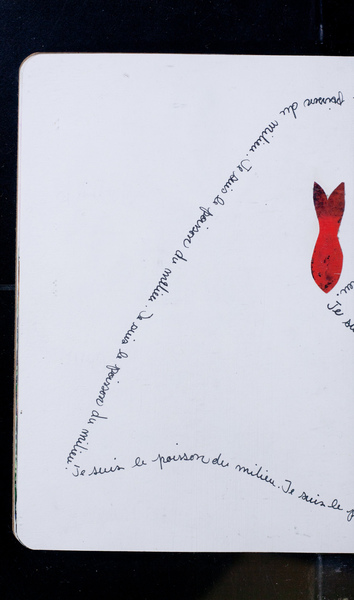 poisson du milieu. Je suis le poisson du milieu. Je suis le poisson du milieu.
Je suis le poisson du milieu. Je suis le
Je su